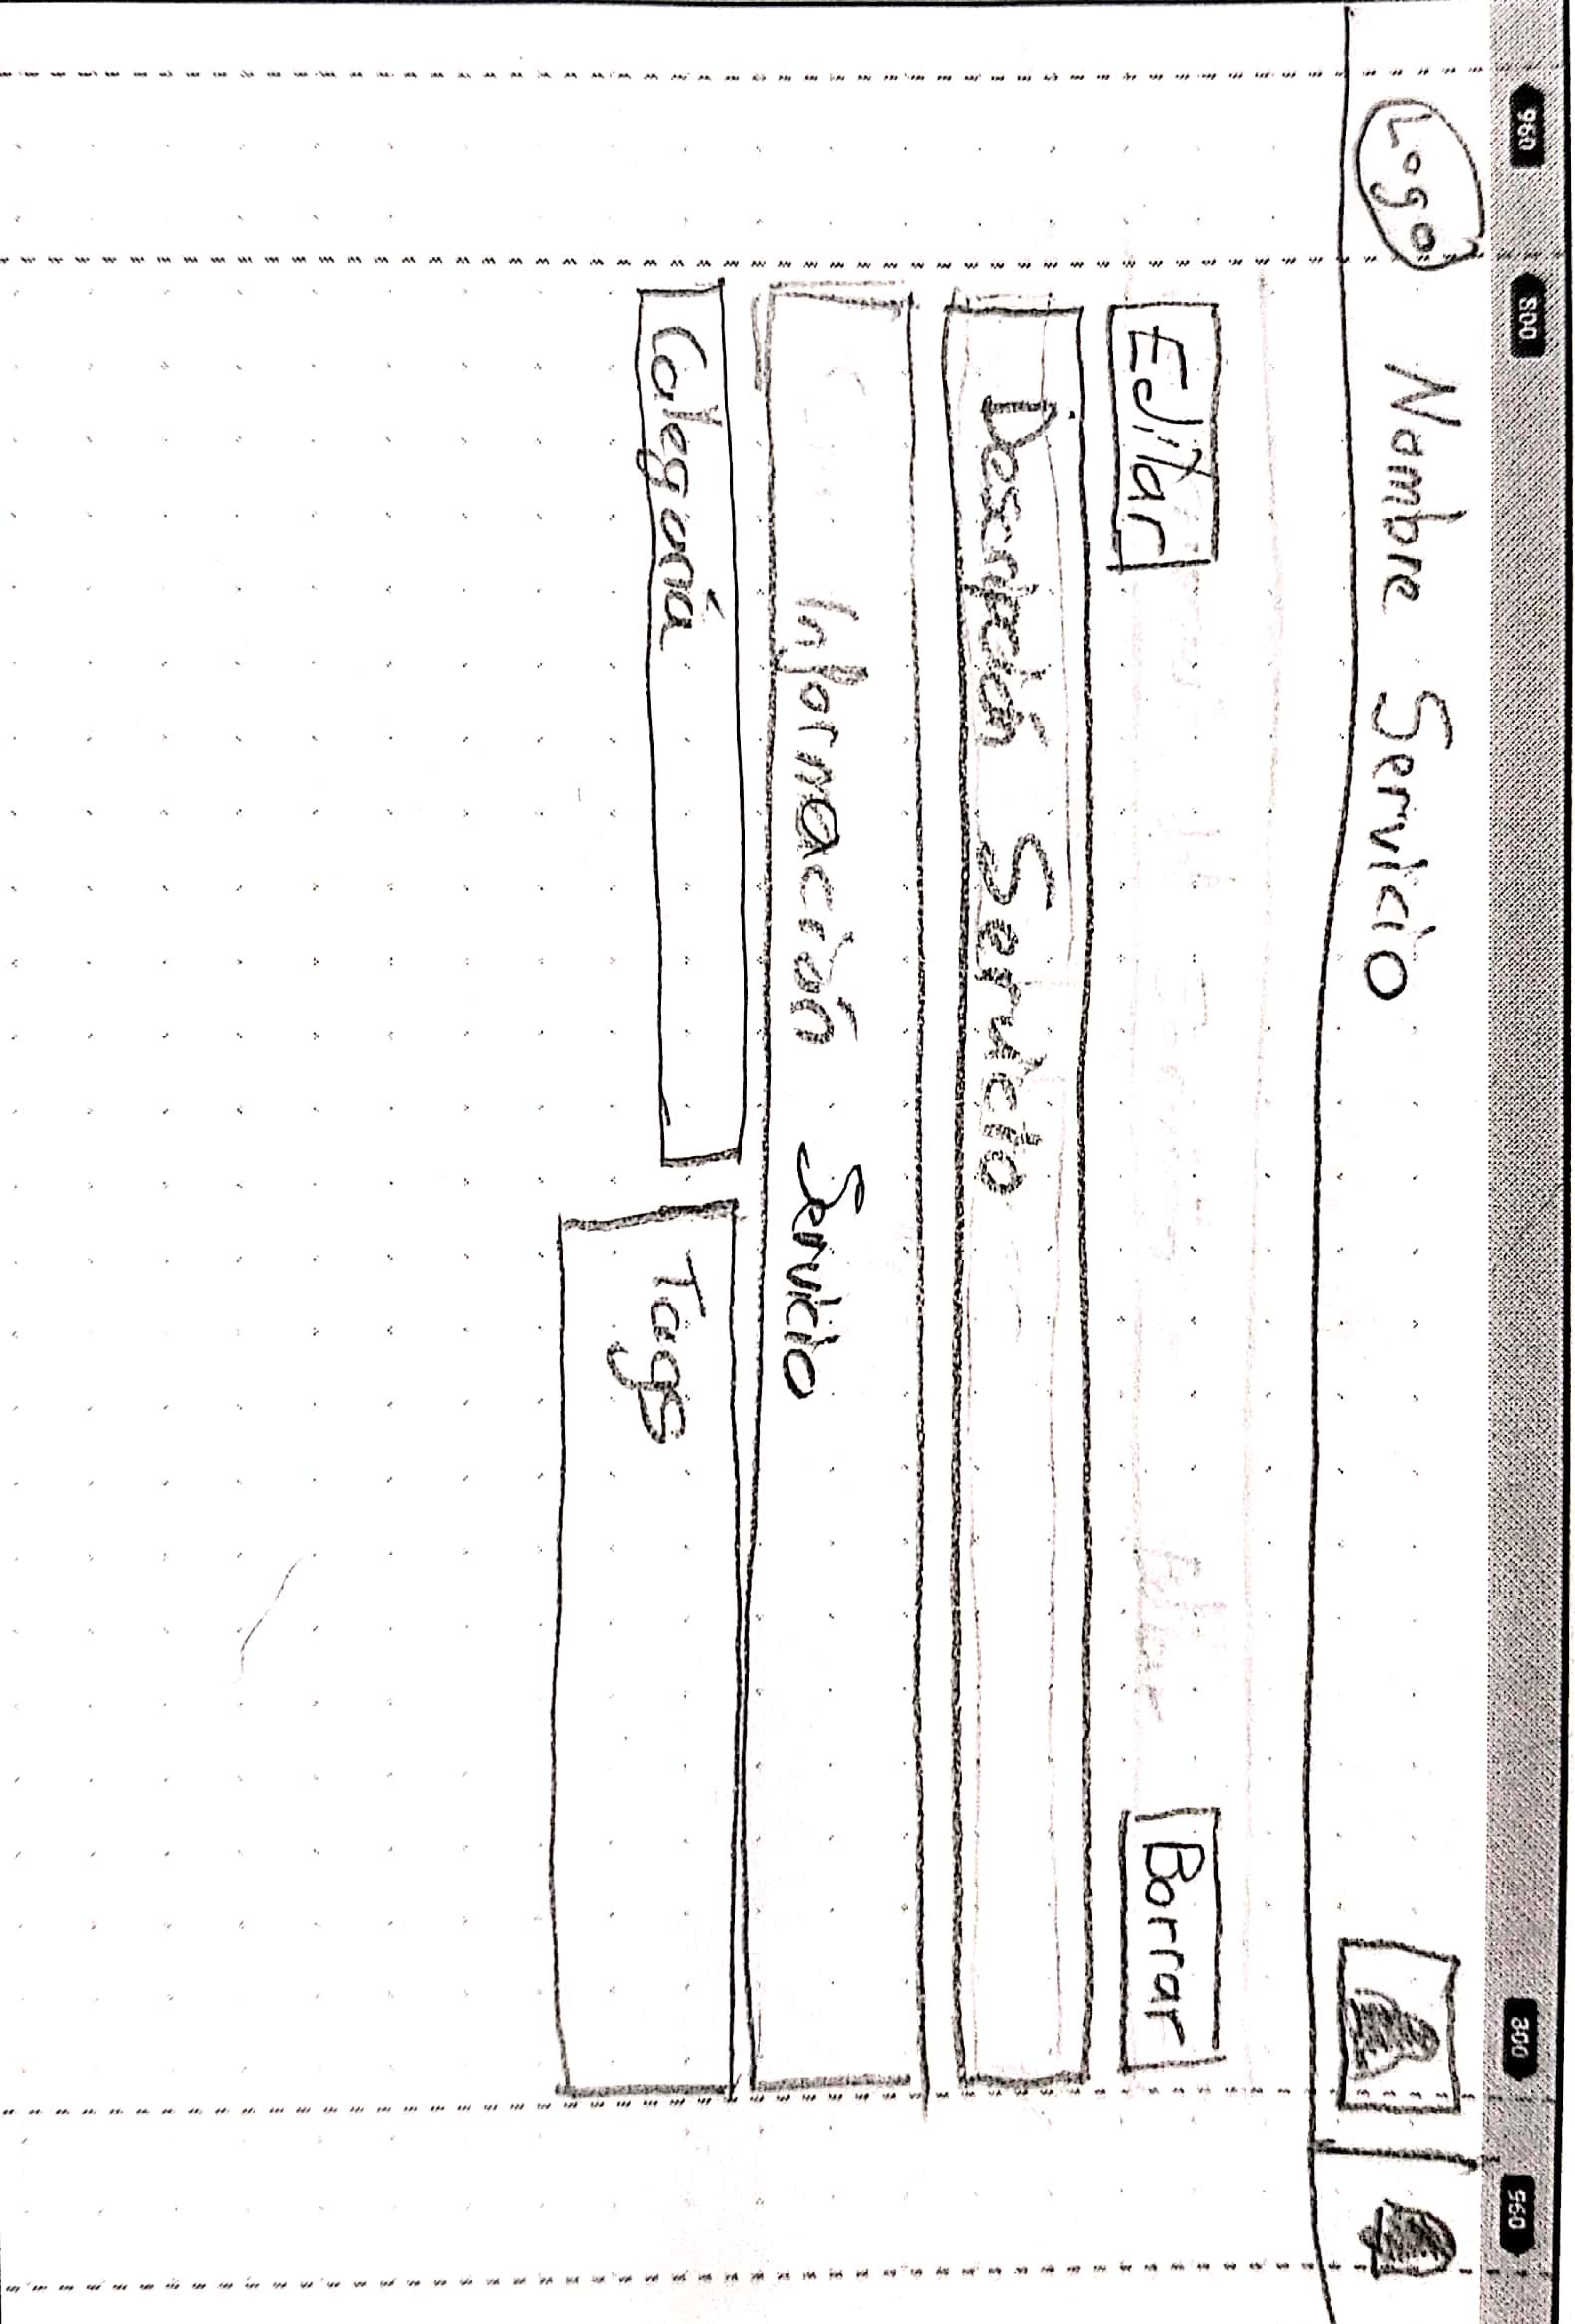 960 800 800 960
Logo Nombre Servicio
Editar Borrar
Descripción Servicio
Información Servicio
Categoría Tags